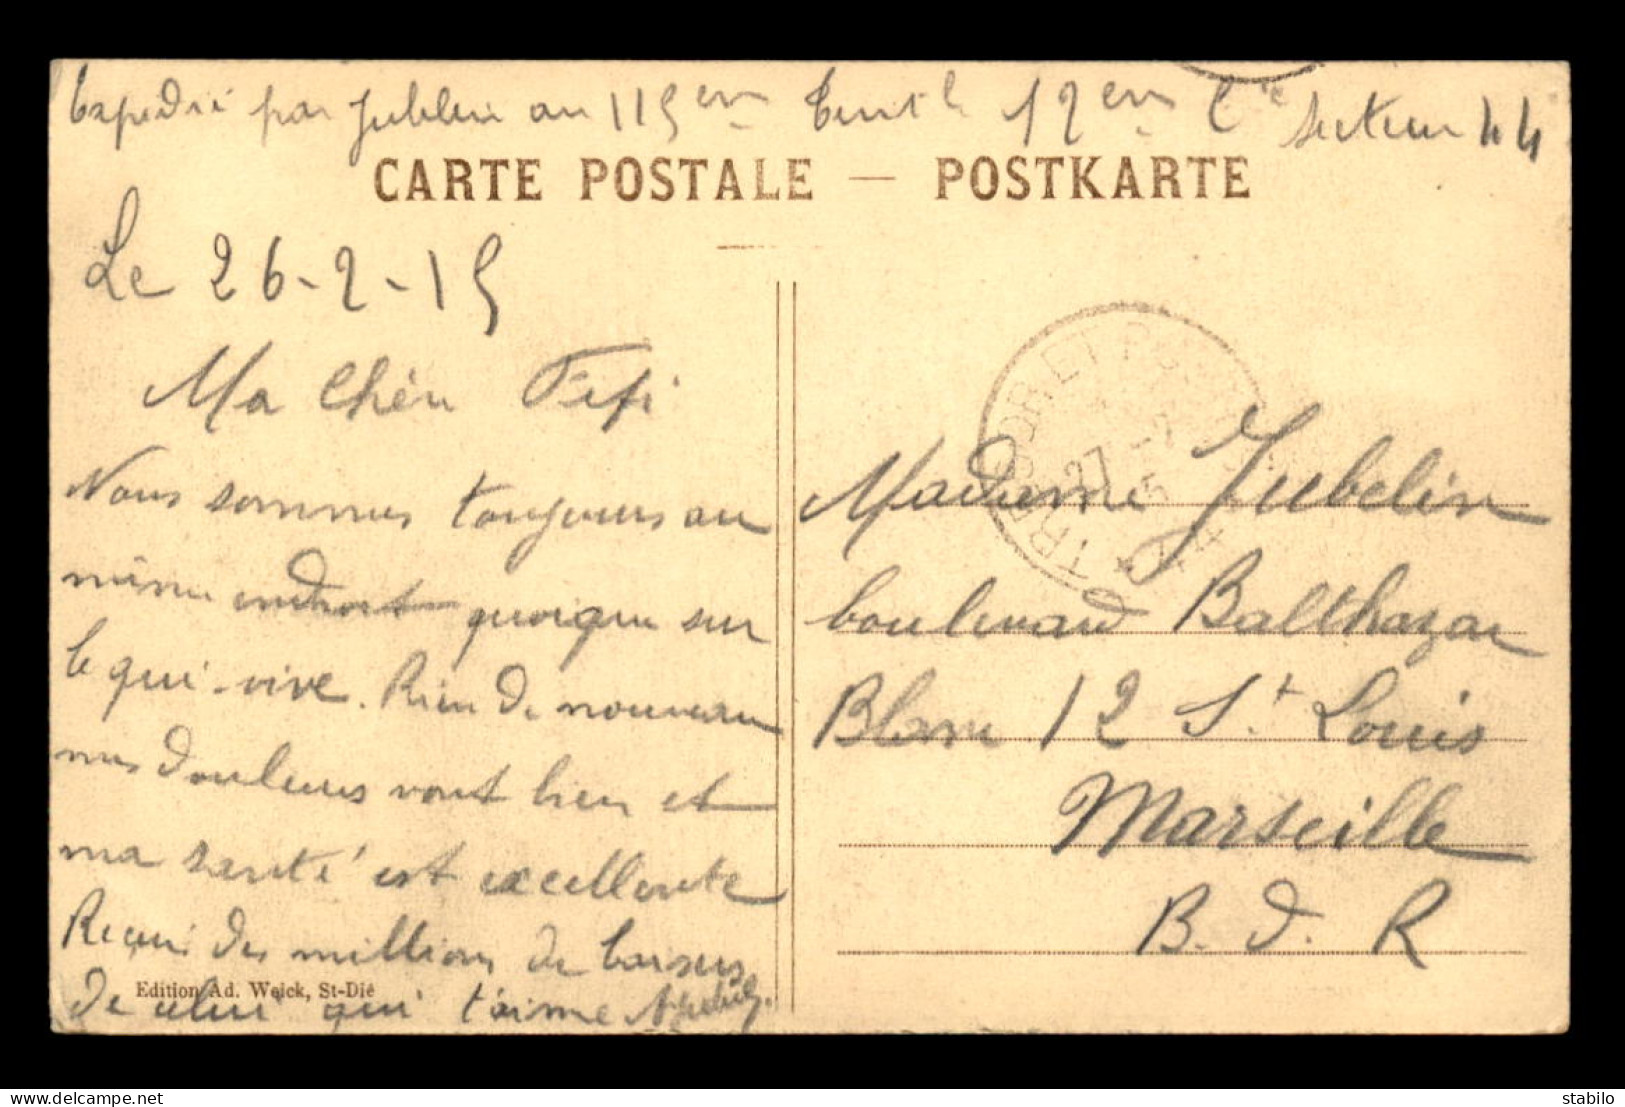 Expédié par Jubelin au 115ème Territ^l 12ème C^ie secteur 44
CARTE POSTALE — POSTKARTE
Le 26-2-15
Ma Chère Fifi
Nous sommes toujours au
même endroit quoique sur
le qui-vive. Rien de nouveau
mes douleurs vont bien et
ma santé est excellente
Reçois des millions de baisers
de celui qui t'aime
Edition Ad. Weick, St-Dié
TRESOR ET POSTES
27 -2
15
* 44 *
Madame Jubelin
boulevard Balthazar
Blanc 12 St. Louis
Marseille
B. d. R
delcampe.net
stabilo